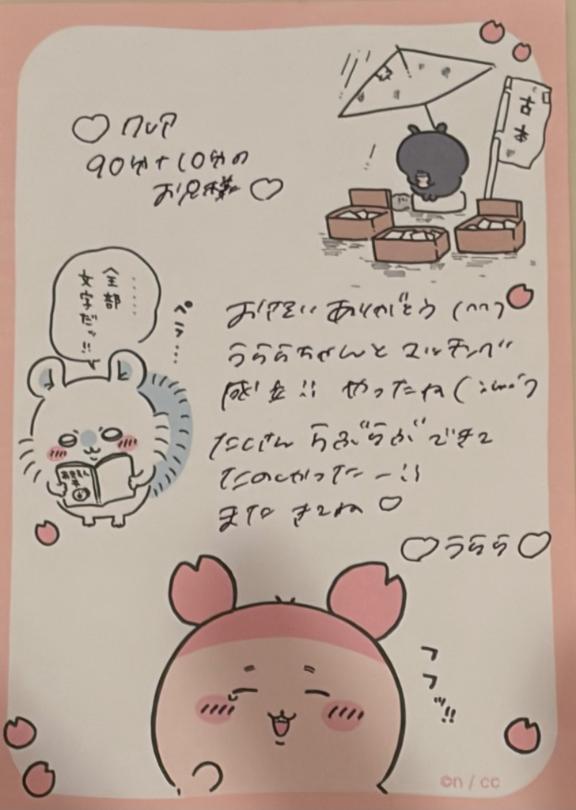 ♡ クレア
90分+10分の
お兄様 ♡
古本
……
全部
文字だッ!!
ペラ…
お手伝い ありがとう (^^)
うららちゃんと マッチング
成立!! やったね
たくさん らぶらぶできて
たのしかったー!!
また きてね ♡
♡うらら♡
フフッ!!
©n / cc